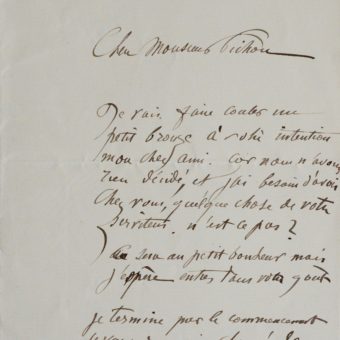 Cher Monsieur Pichon
Je vais faire couler un
petit bronze à votre intention
mon cher ami. Car nous n'avons
rien décidé, et j'ai besoin d'avoir
chez vous, quelque chose de votre
serviteur. n'est ce pas?
Ça sera au petit bonheur mais
j'espère entrer dans votre goût
je termine par le commencement